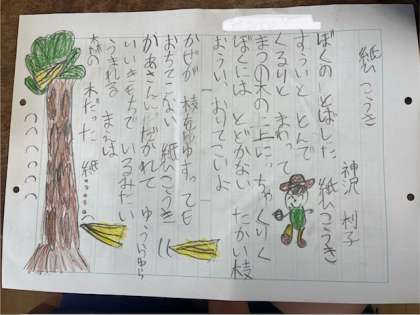 紙ひこうき
神沢 利子
ぼくの とばした 紙ひこうき
すういと とんで
くるりと まわって
まつの木の 上に ちゃくりく
ぼくには とどかない たかい枝
おうい、おりてこいよ
かぜが 枝を ゆすっても
おちてこない 紙ひこうき
かあさんに だかれて ゆうらゆら
いいきもちで いるみたい
うまれる まえは
森の 木だった 紙